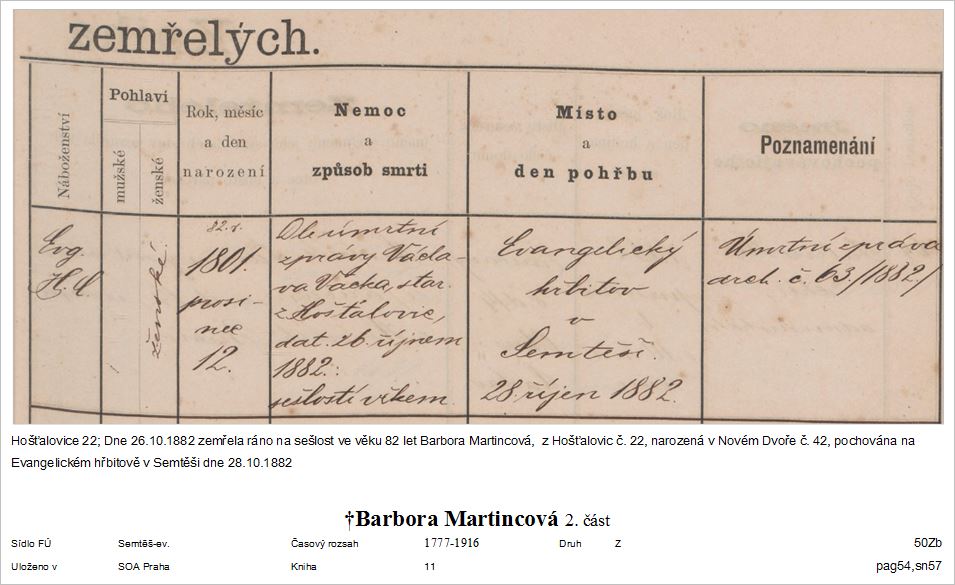 zemřelých.
Náboženství
Pohlaví
mužské
ženské
Rok, měsíc
a den
narození
Nemoc
a
způsob smrti
Místo
a
den pohřbu
Poznamenání
Evg.
ženské.
82. r.
1801.
prosi-
nec
12.
Dle úmrtní
zprávy Václa-
va Vacka, star.
z Hošťalovic,
dat. 26. říjnem
1882.:
sešlostí věkem.
Evangelický
hřbitov
v
Semtěši.
28. říjen 1882.
Úmrtní zpráva
arch. č. 63./1882/
Hošťalovice 22; Dne 26.10.1882 zemřela ráno na sešlost ve věku 82 let Barbora Martincová, z Hošťalovic č. 22, narozená v Novém Dvoře č. 42, pochována na
Evangelickém hřbitově v Semtěši dne 28.10.1882
†Barbora Martincová 2. část
Sídlo FÚ Semtěš-ev. Časový rozsah 1777-1916 Druh Z 50Zb
Uloženo v SOA Praha Kniha 11 pag54,sn57